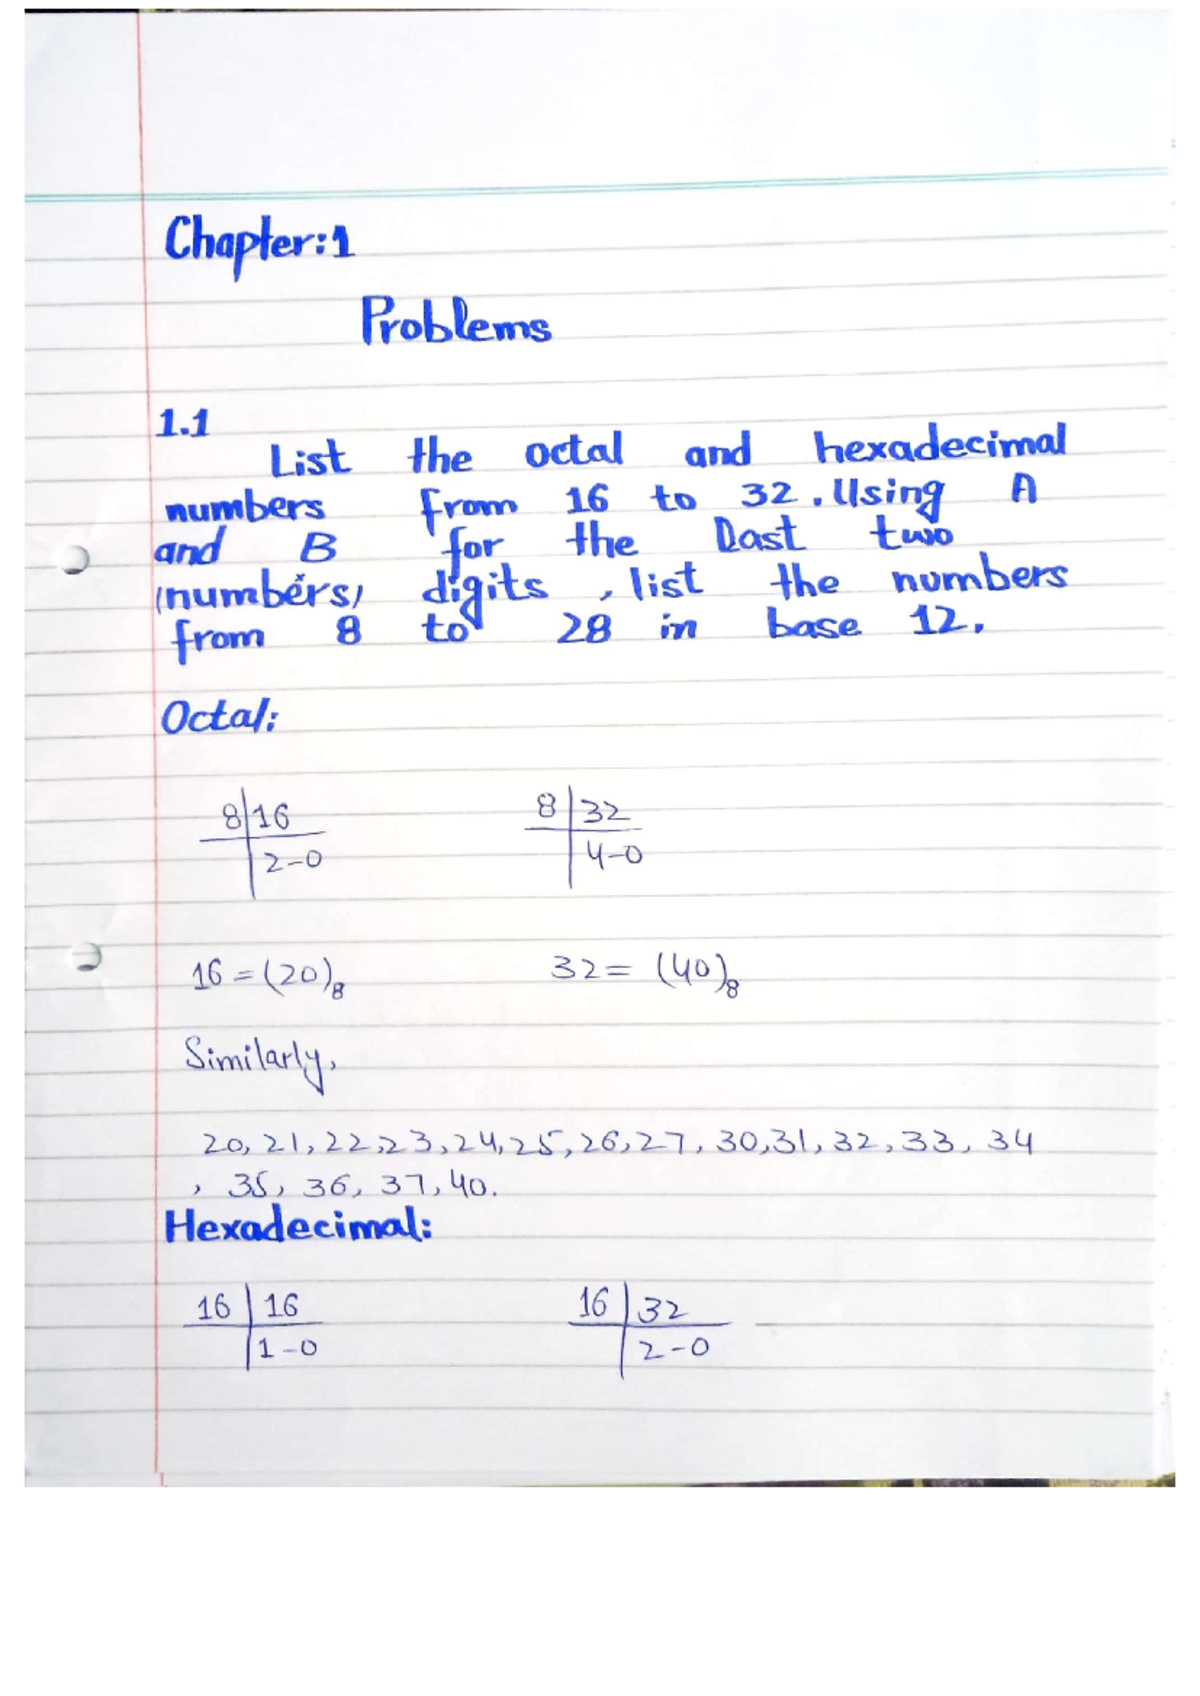 Chapter:1
Problems
1.1
List the octal and hexadecimal
numbers from 16 to 32. Using A
and B for the Last two
(numbers) digits, list the numbers
from 8 to 28 in base 12.
Octal:
8|16 8|32
2-0 4-0
16=(20)8 32=(40)8
Similarly,
20, 21, 22, 23, 24, 25, 26, 27, 30, 31, 32, 33, 34
, 35, 36, 37, 40.
Hexadecimal:
16|16 16|32
1-0 2-0